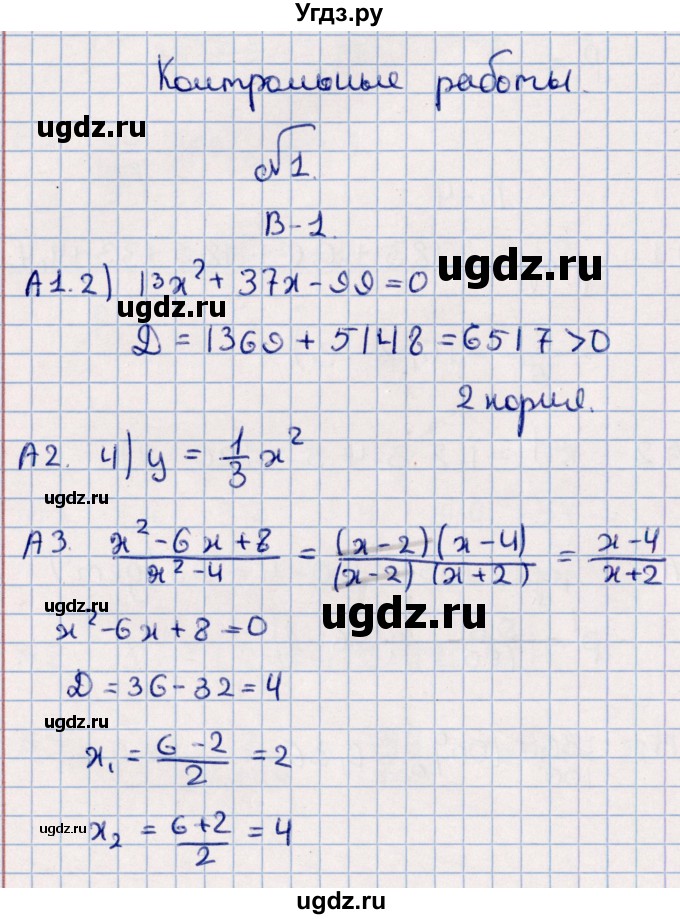 Угдз.ру
Контрольные работы.
ugdz.ru
№1.
В-1.
ugdz.ru
А1. 2) 13x² + 37x - 99 = 0
ugdz.ru
D = 1369 + 5148 = 6517 > 0
2 корня.
А2. 4) y = 1/3 x²
ugdz.ru
А3. (x² - 6x + 8)/(x² - 4) = ((x - 2)(x - 4))/((x - 2)(x + 2)) = (x - 4)/(x + 2)
ugdz.ru
ugdz.ru
x² - 6x + 8 = 0
D = 36 - 32 = 4
ugdz.ru
x₁ = (6 - 2)/2 = 2
ugdz.ru
x₂ = (6 + 2)/2 = 4
www.ugdz.ru